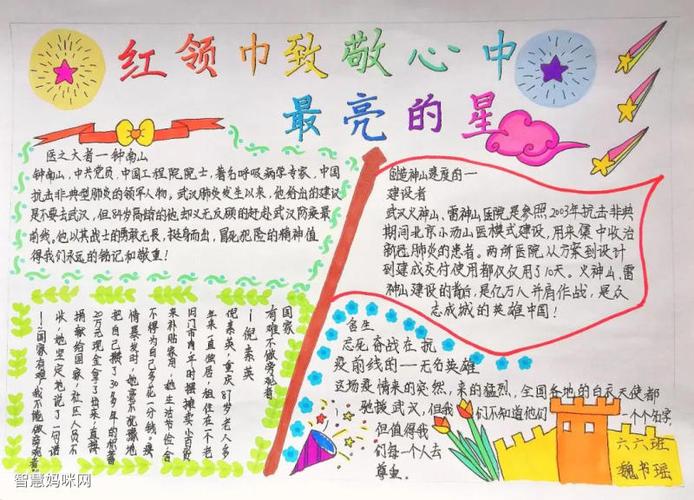 红领巾致敬心中
最亮的星
医之大者一钟南山
钟南山,中共党员,中国工程院院士,著名呼吸病学专家,中国
抗击非典型肺炎的领军人物。武汉肺炎发生以来,他给出的建议
是不要去武汉,但84岁高龄的他却义无反顾的赶赴武汉防疫最
前线。他以其战士的勇敢无畏,挺身而出,冒死犯险的精神值
得我们永远的铭记和敬重!
创造神山速度的一
建设者
武汉火神山、雷神山医院是参照2003年抗击非典
期间北京小汤山医模式建设,用来集中收治
新冠肺炎的患者。两所医院从方案到设计
到建成交付使用都仅仅用了10天。火神山、雷
神山建设的背后,是亿万人并肩作战,是众
志成城的英雄中国!
国家
有难不做旁观者
—倪素英
倪素英,重庆87岁老人多
年来一直独居,租住在个老
旧门市内,平时摆摊卖小百货
来补贴家用,她生活节俭,舍
不得为自己多花一分钱。疫
情暴发时,她毫不犹豫地
把自己攒了30多年的积蓄
20万元现金拿了出来,直接
捐献给国家,社区人员不
收,她坚定地说了一句话
:"国家有难,我不能做旁观者。"
舍生
忘死奋战在抗
疫前线的一一无名英雄
这场疫情来的突然,来的猛烈,全国各地的白衣天使都
驰援武汉,但我们不知道他们一个个名字,
但值得我
们每一个人去
尊重。
六六班
魏书瑶
智慧妈咪网